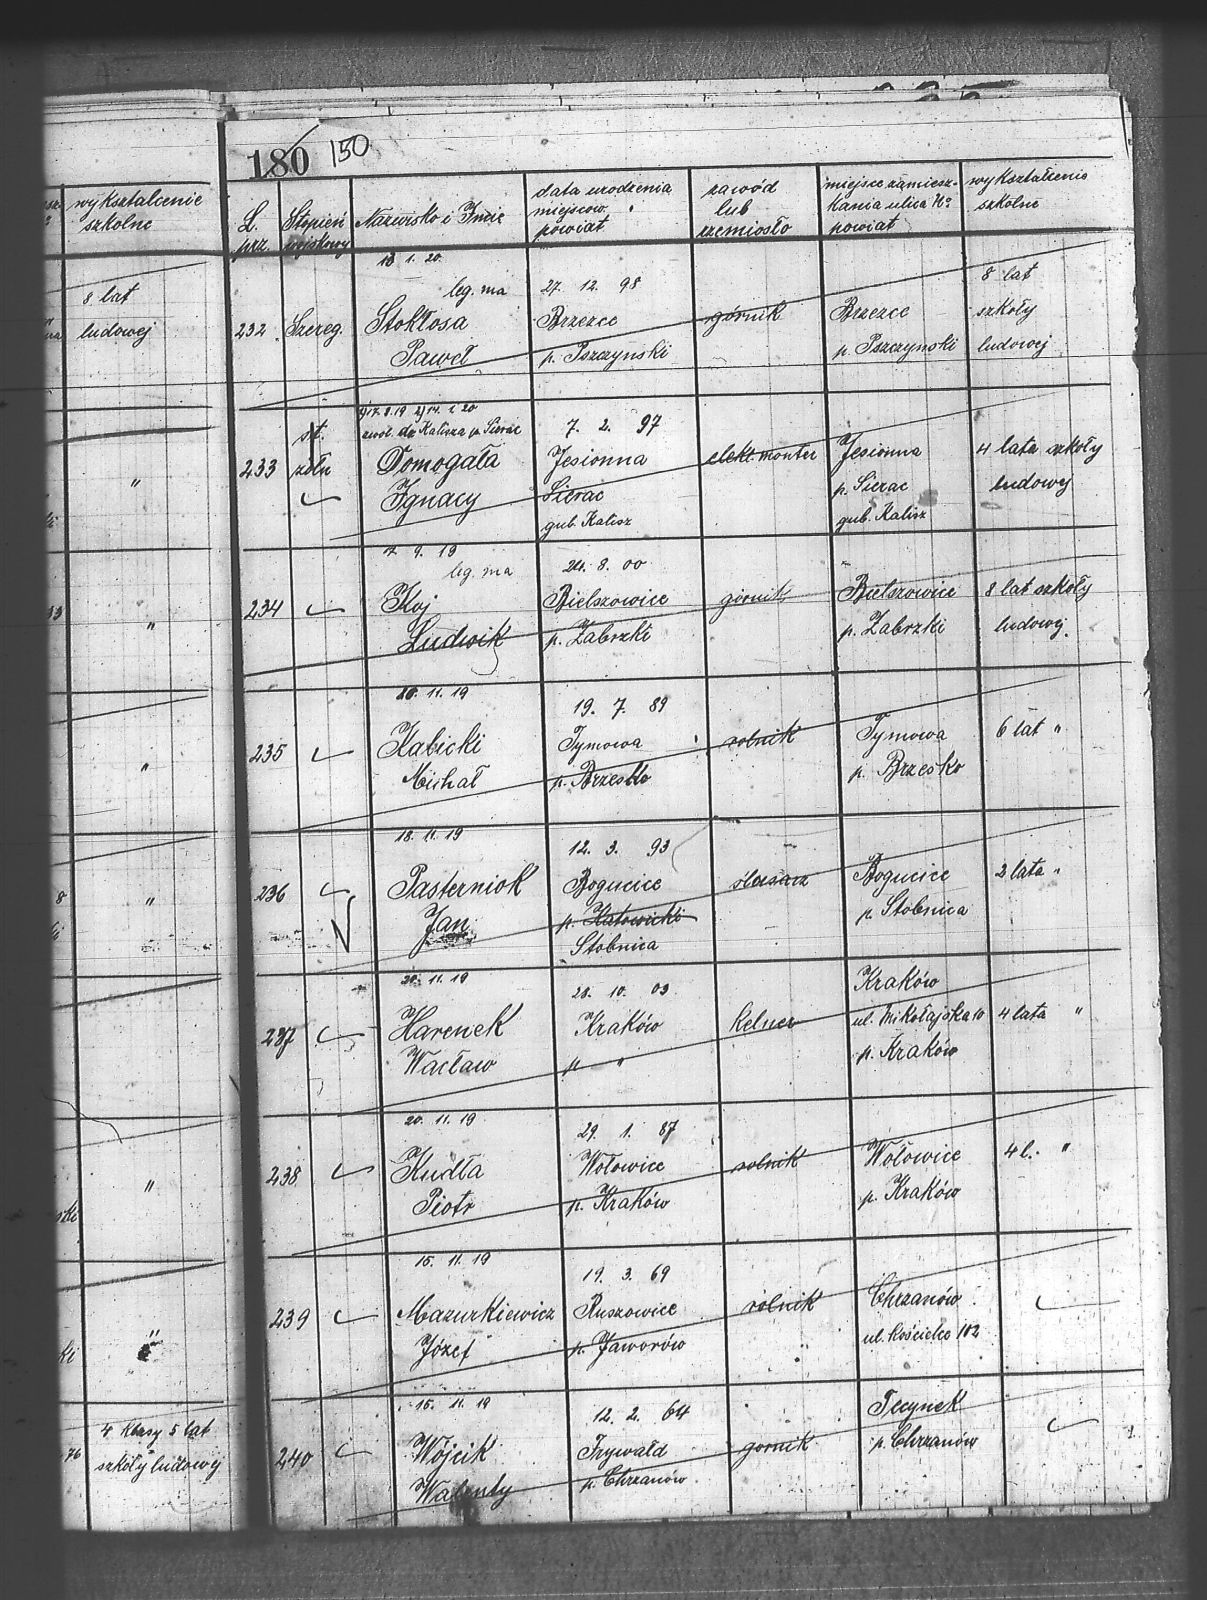 wykształcenie
szkolne
8 lat
ludowej
"
"
"
"
"
"
4 klasy 5 lat
szkoły ludowej
180 150
L.
prz.
Stopień
wojskowy
Nazwisko i Imię
data urodzenia
miejscow.
powiat
zawód
lub
rzemiosło
miejsce zamiesz-
kania ulica No
powiat
wykształcenie
szkolne
13 1. 20.
leg. ma
232 Szereg. Stokłosa
Paweł
27. 12. 98
Brzezce
p. Pszczynski
górnik
Brzezce
p. Pszczynski
8 lat
szkoły
ludowej
1) 17. 8. 19 2) 14. 1. 20
zwol. do Kalisza p. Sierac
233 st.
żołn
Domogała
Ignacy
7. 2. 97
Jesionna
Sierac
gub. Kalisz
elekt. monter
Jesionna
p. Sierac
gub. Kalisz
4 lata szkoły
ludowej
7. 9. 19
leg. ma
234 Koj
Ludwik
24. 8. 00
Bielszowice
p. Zabrzki
górnik
Bielszowice
p. Zabrzki
8 lat szkoły
ludowej.
20. 11. 19
235 Żabicki
Michał
19. 7. 89
Tymowa
p. Brzesko
rolnik
Tymowa
p. Brzesko
6 lat "
18. 11. 19
236 Pasterniok
Jan
12. 3. 93
Bogucice
p. Katowicki
Stobnica
ślusarz
Bogucice
p. Stobnica
2 lata "
20. 11. 19
237 Harenek
Wacław
28. 10. 03
Kraków
" "
kelner
Kraków
ul. Mikołajska 10
p. Kraków
4 lata "
20. 11. 19
238 Kudła
Piotr
29. 1. 87
Wołowice
p. Kraków
rolnik
Wołowice
p. Kraków
4 l. "
15. 11. 19
239 Mazurkiewicz
Józef
19. 3. 69
Ruszowice
p. Jaworów
rolnik
Chrzanów
ul. Kościelec 102
15. 11. 19
240 Wójcik
Walenty
12. 2. 64
Frywałd
p. Chrzanów
gornik
Tecynek
p. Chrzanów